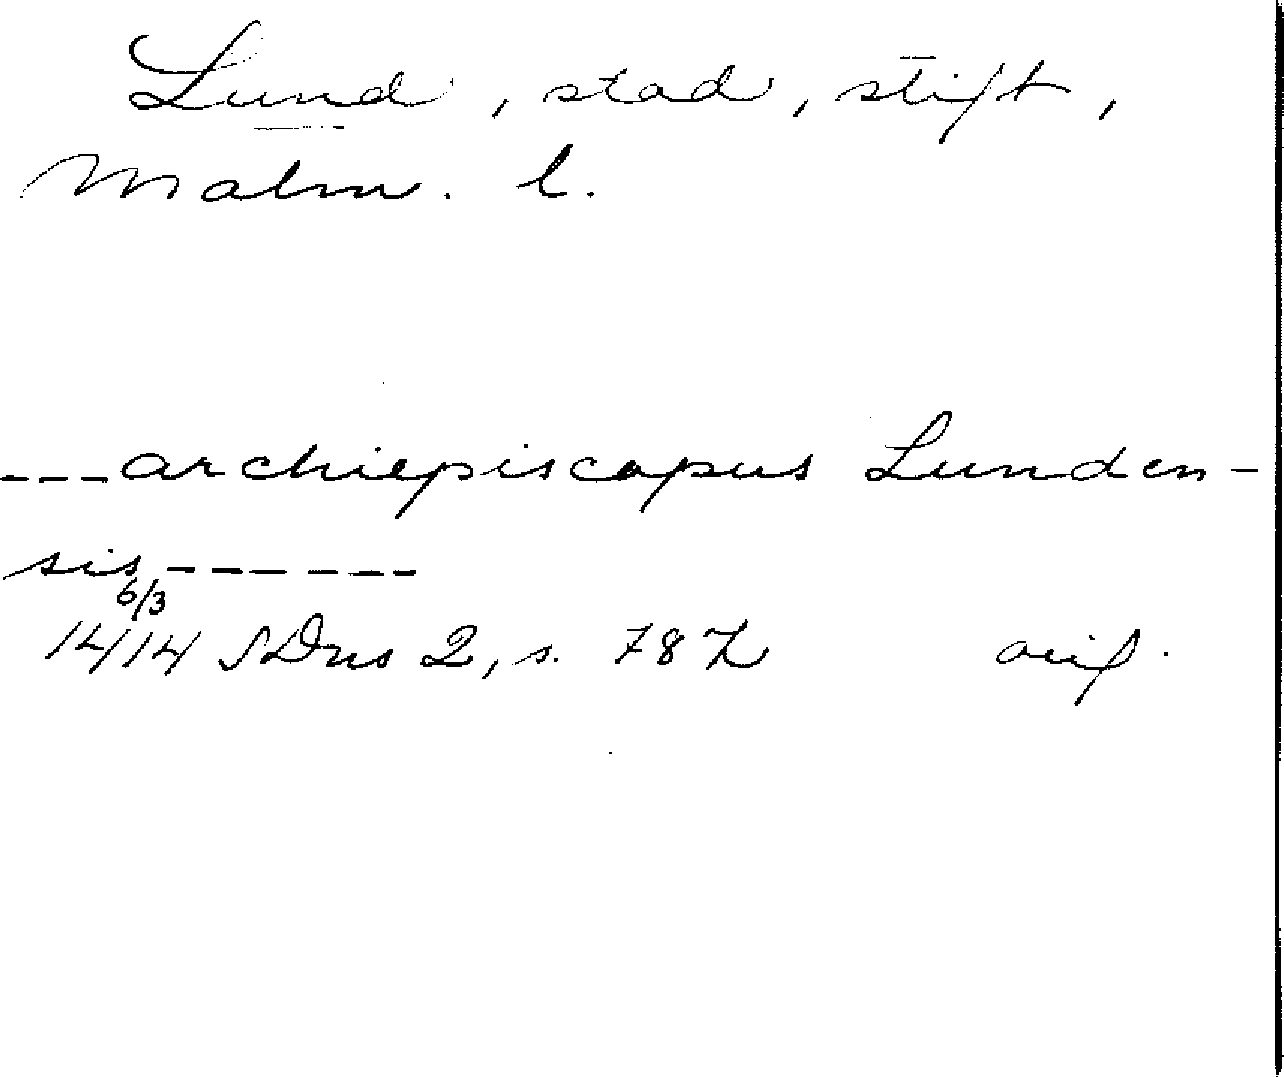 Lund, stad, stift,
Malm. l.
---archiepiscopus Lunden-
sis------
6/3
1414 SDns 2, s. 787 avs.